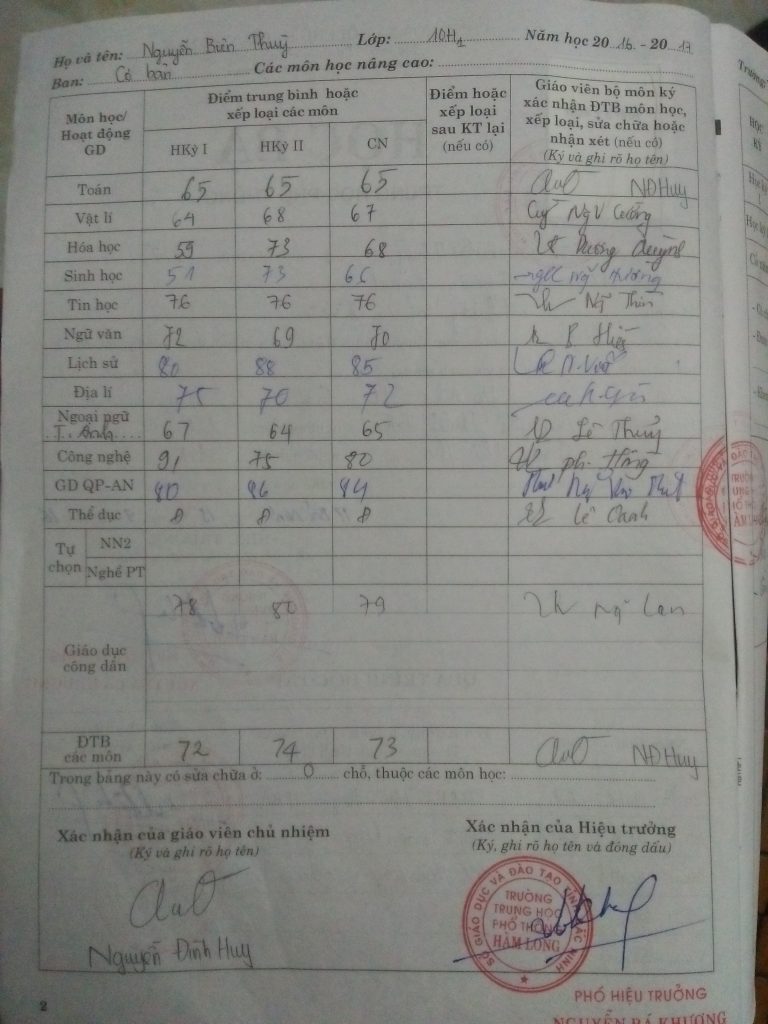 Họ và tên: Nguyễn Biên Thuỳ Lớp: 10H1 Năm học 2016 - 2017
Ban: Cơ bản Các môn học nâng cao:
Môn học/ Hoạt động GD
Điểm trung bình hoặc xếp loại các môn
HKỳ I HKỳ II CN
Điểm hoặc xếp loại sau KT lại (nếu có)
Giáo viên bộ môn ký xác nhận ĐTB môn học, xếp loại, sửa chữa hoặc nhận xét (nếu có)
(Ký và ghi rõ họ tên)
Toán 65 65 65 NĐHuy
Vật lí 64 68 67 Ngv Cường
Hóa học 59 73 68
Sinh học 51 73 66
Tin học 76 76 76
Ngữ văn 72 69 70
Lịch sử 80 88 85
Địa lí 75 70 72
Ngoại ngữ T. Anh 67 64 65 Lê Thuỷ
Công nghệ 91 75 80 ph. Hồng
GD QP-AN 80 96
Thể dục Đ Đ Đ Lê Oanh
Tự chọn
NN2
Nghề PT
Giáo dục công dân 78 80 79 Ng Lan
ĐTB các môn 72 74 73 NĐHuy
Trong bảng này có sửa chữa ở: 0 chỗ, thuộc các môn học:
Xác nhận của giáo viên chủ nhiệm
(Ký và ghi rõ họ tên)
Nguyễn Đình Huy
Xác nhận của Hiệu trưởng
(Ký, ghi rõ họ tên và đóng dấu)
SỞ GIÁO DỤC VÀ ĐÀO TẠO TỈNH BẮC NINH
TRƯỜNG
TRUNG HỌC
PHỔ THÔNG
HÀM LONG
PHÓ HIỆU TRƯỞNG
NGUYỄN BÁ KHƯƠNG
2